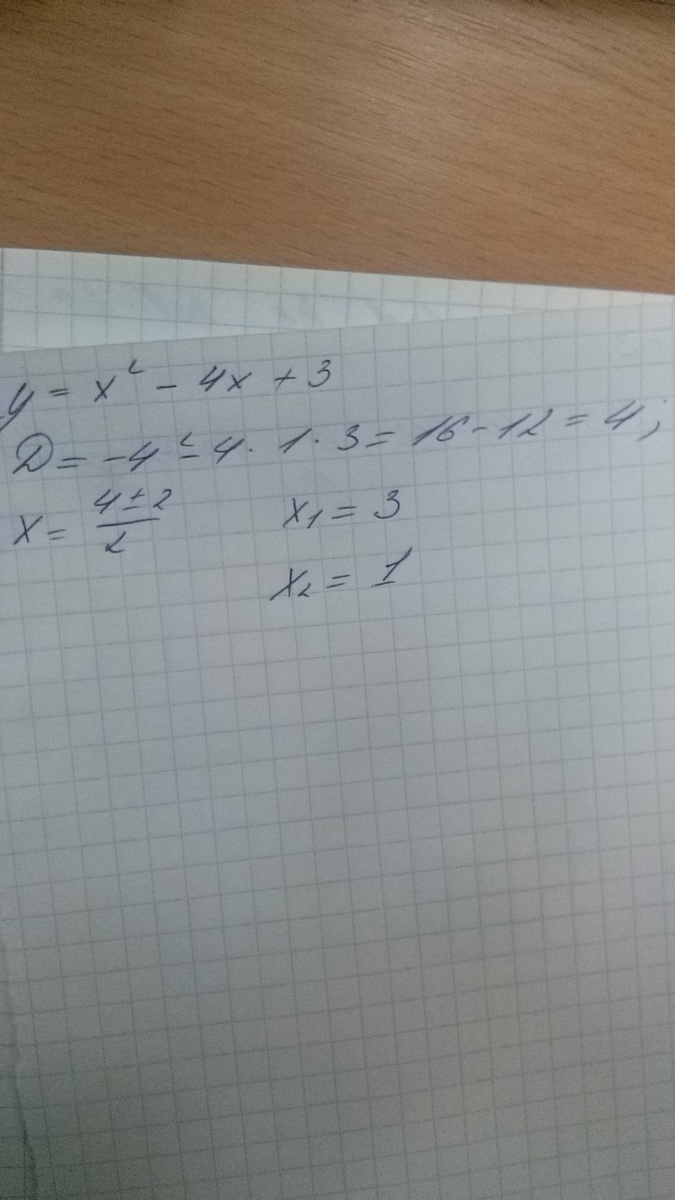 y = x² - 4x + 3
D = -4² - 4 · 1 · 3 = 16 - 12 = 4;
x = (4 ± 2)/2 x₁ = 3
x₂ = 1